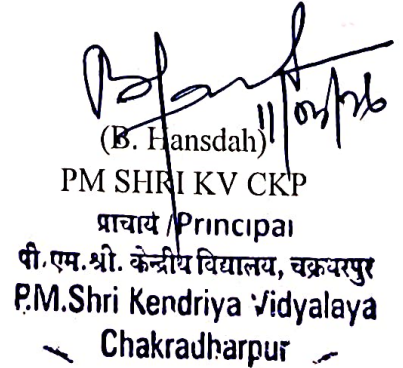 11/02/26
(B. Hansdah)
PM SHRI KV CKP
प्राचार्य /Principal
पी.एम.श्री. केन्द्रीय विद्यालय, चक्रधरपुर
P.M.Shri Kendriya Vidyalaya
Chakradharpur